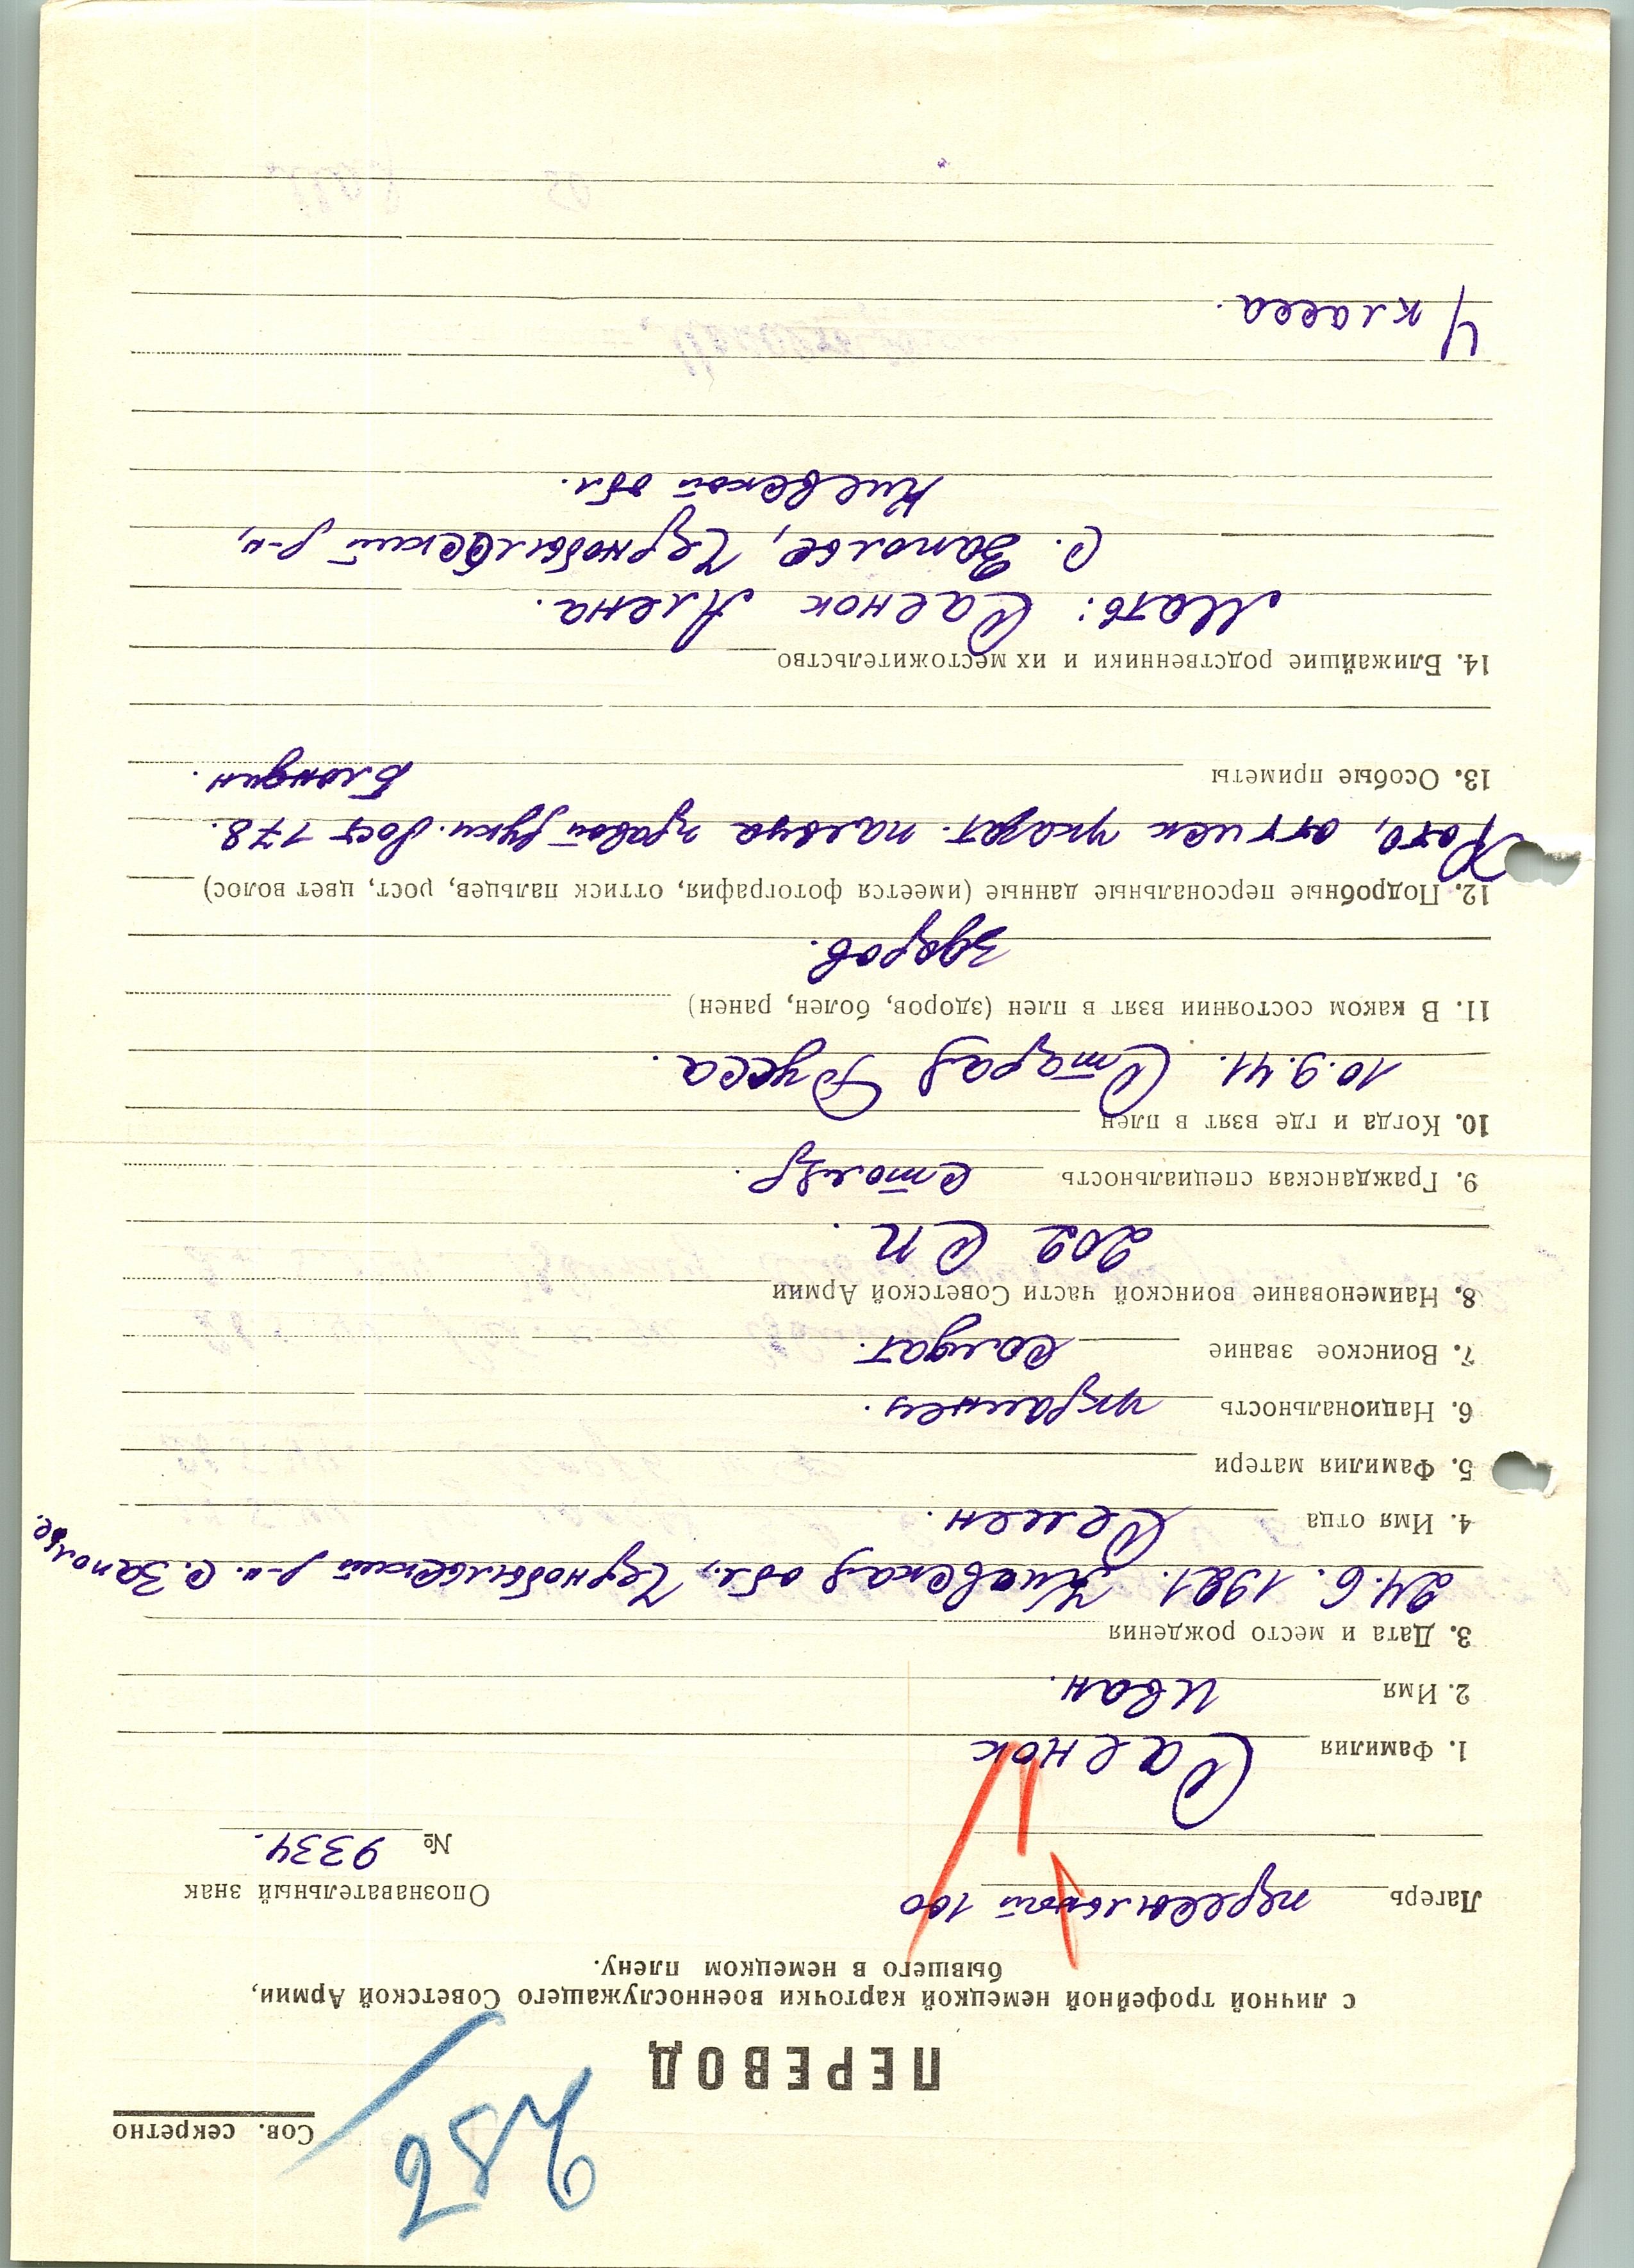 256
Сов. секретно
ПЕРЕВОД
с личной трофейной немецкой карточки военнослужащего Советской Армии,
бывшего в немецком плену.
Лагерь пересыльный 100
Опознавательный знак
№ 9334.
1. Фамилия Саенок
2. Имя Иван.
3. Дата и место рождения
24.6.1921. Киевская обл., Чернобыльский р-н. с. Заполье.
4. Имя отца Семен.
5. Фамилия матери
6. Национальность украинец.
7. Воинское звание Солдат.
8. Наименование воинской части Советской Армии
202 СП.
9. Гражданская специальность столяр.
10. Когда и где взят в плен
10.9.41. Старая Русса.
11. В каком состоянии взят в плен (здоров, болен, ранен)
здоров.
12. Подробные персональные данные (имеется фотография, оттиск пальцев, рост, цвет волос)
Фото, оттиск указат. пальца правой руки. Рост 178.
13. Особые приметы Блондин.
14. Ближайшие родственники и их местожительство
Мать: Саенок Алена.
с. Заполье, Чернобыльский р-н,
Киевской обл.
4 класса.